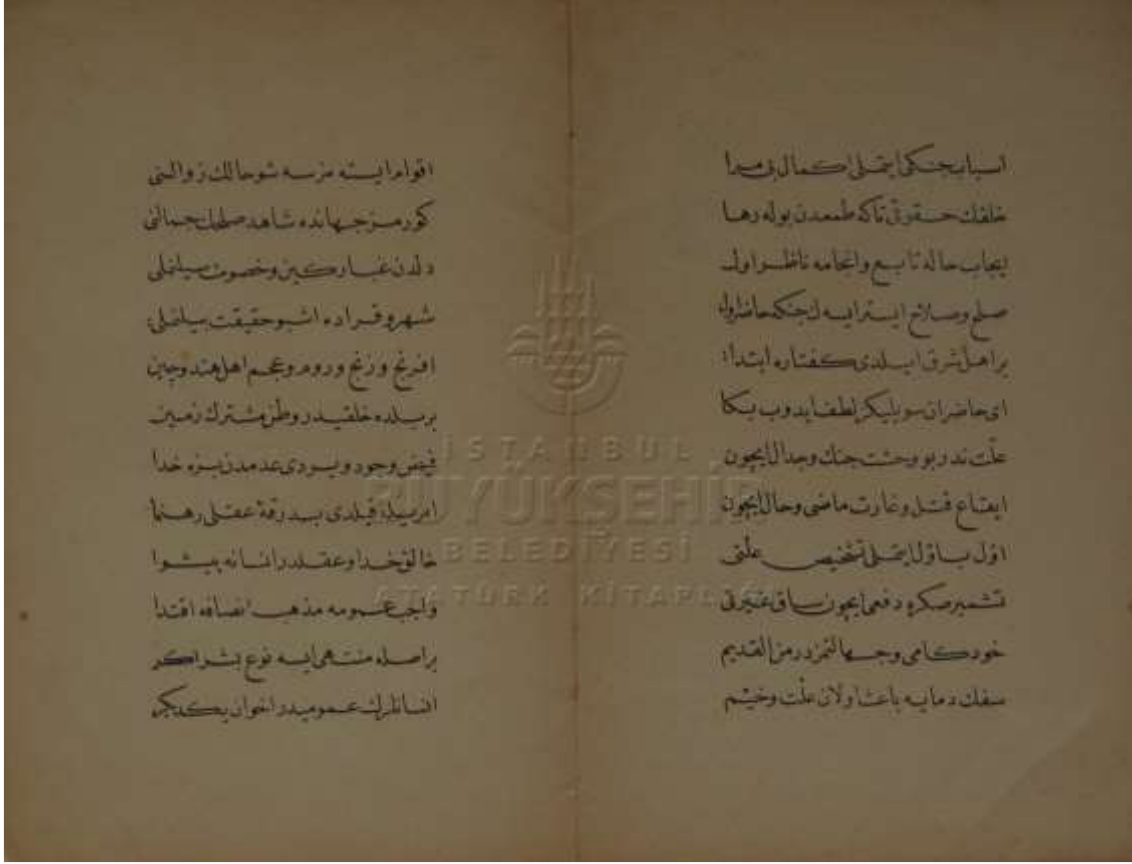 اسباب جنكی ایتملی اكمال بی مرا
خلقك حقوقی تاكه طمعدن بوله رها
ایجاب حاله تابع وانجامه ناظر اول
صلح وصلاح ایستر ایسه ك جنكه حاضر اول
بر اهل شرق ایلدی كفتاره ابتدا:
ای حاضران سویلیكز لطف ایدوب بكا
علت ندر بو وحشت جنك وجدال ایچون
ایقاع قتل وغارت ماضی وحال ایچون
اول باول ایتملی تشخیص علتی
تشمیر صكره دفعی ایچون ساق غیرتی
خودكامی وجهالتمزدر من القدیم
سفك دمایه باعث اولان علت وخیم
اقوام ایسته مزسه شو حالك زوالنی
كورمز جهانده شاهد صلحك جمالنی
دلدن غبار كین وخصومت سیلنملی
شهر وقراده اشبو حقیقت بیلنملی:
افرنج وزنج وروم وعجم اهل هند وچین
بر بلده خلقیدر وطن مشترك زمین
فیض وجود ویردی عدمدن بزه خدا
امریله قیلدی بدرقهٔ عقلی رهنما
خالق خدا وعقلدر انسانه پیشوا
واجب عمومه مذهب انصافه اقتدا
بر اصله منتهی ایسه نوع بشر اكر
انسانلرك عمومیدر اخوان یكدیكر
İSTANBUL
BÜYÜKŞEHİR
BELEDİYESİ
ATATÜRK KİTAPLIĞI